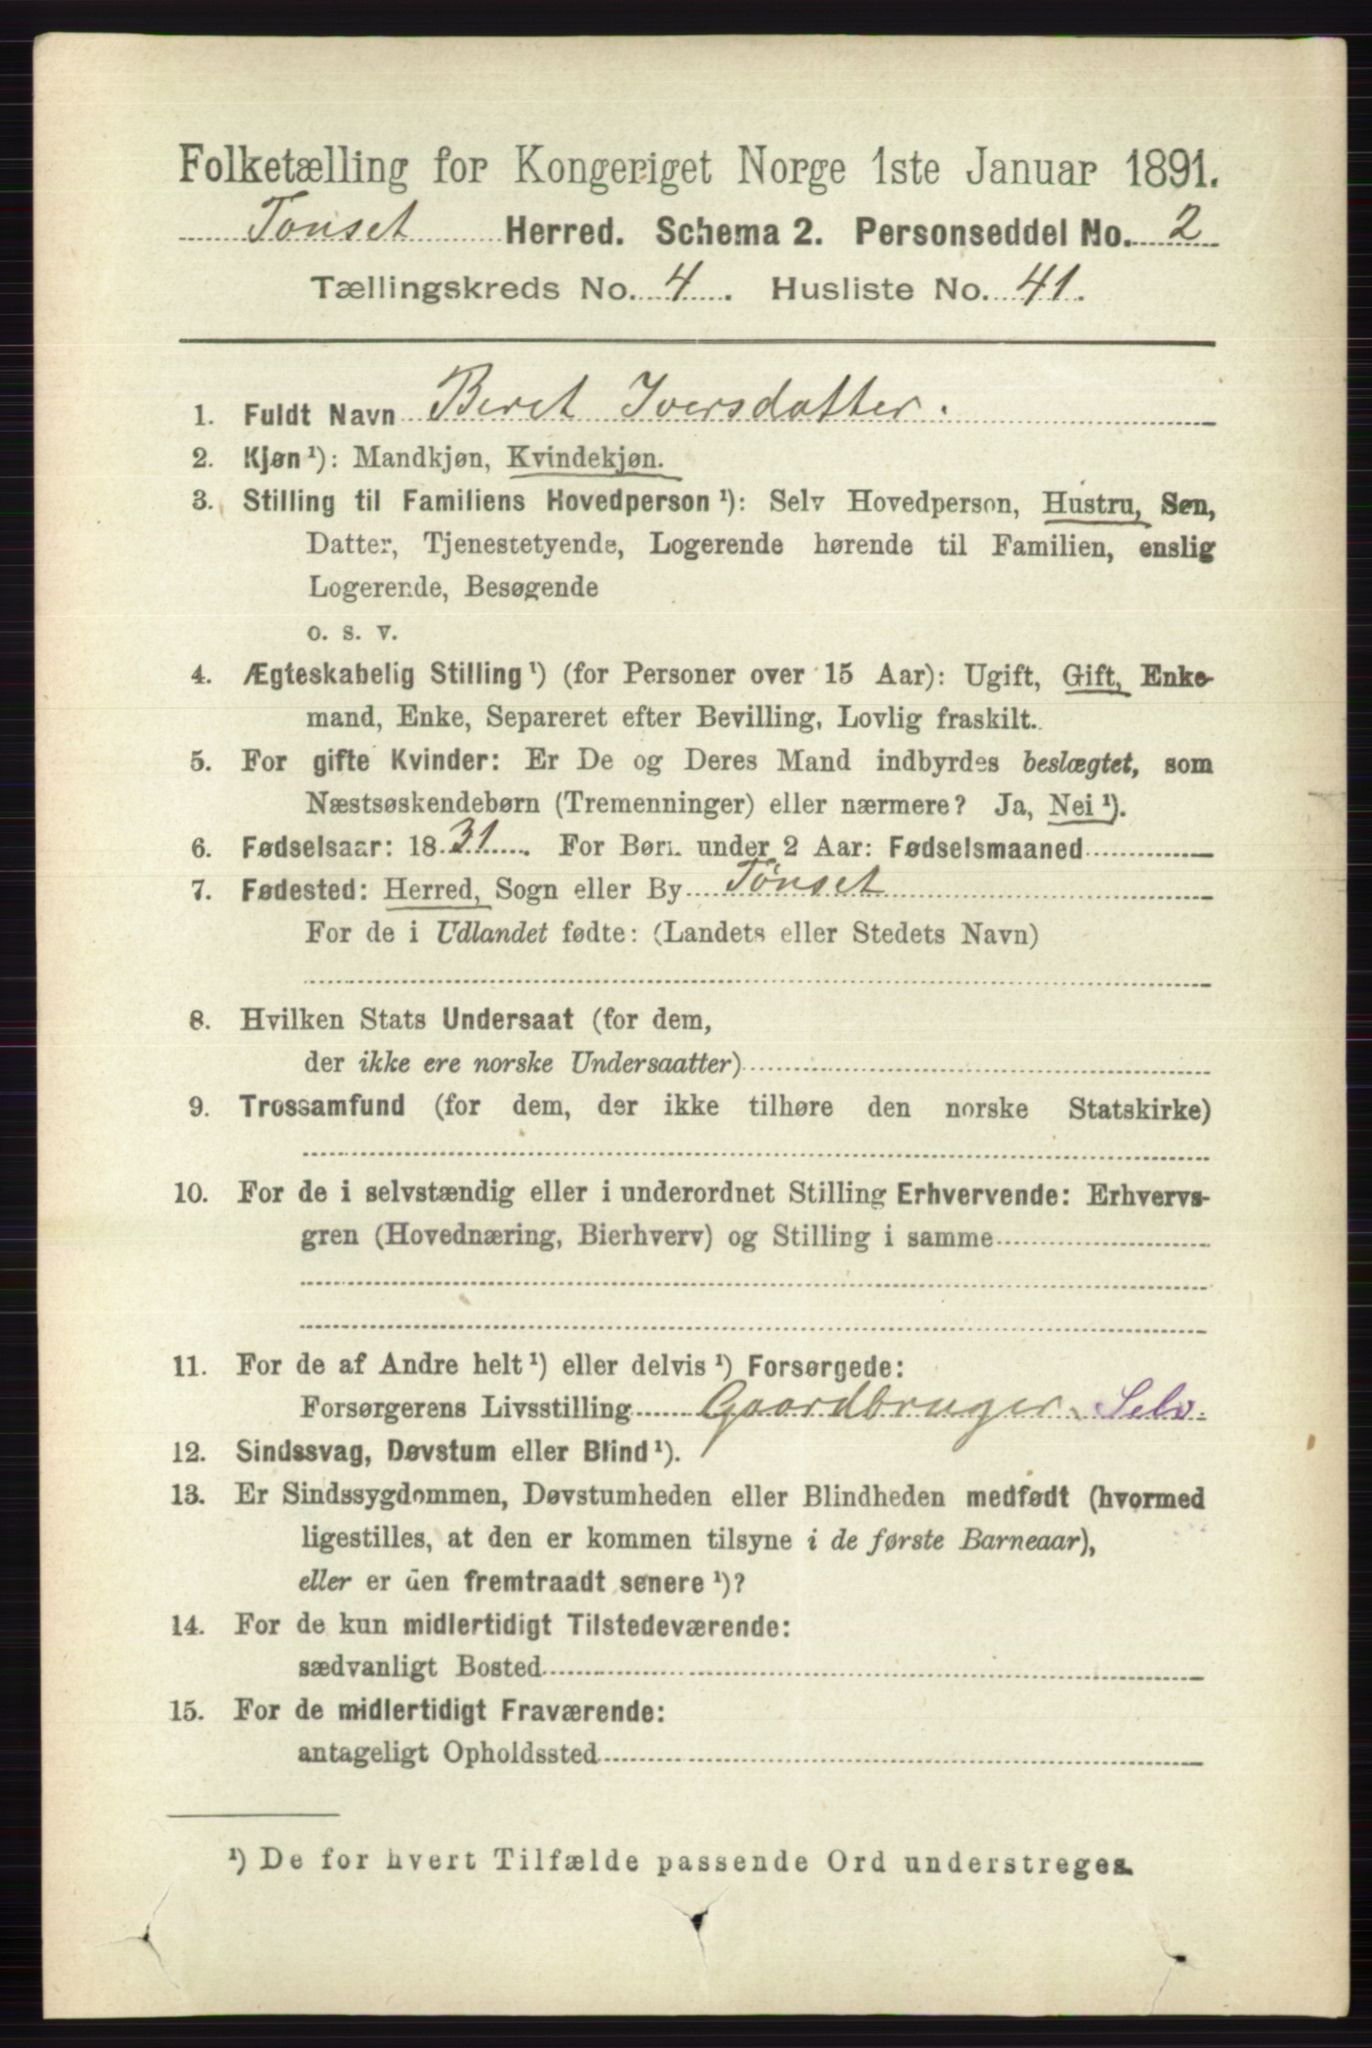 Folketælling for Kongeriget Norge 1ste Januar 1891.
Tønset Herred. Schema 2. Personseddel No. 2
Tællingskreds No. 4. Husliste No. 41.
1. Fuldt Navn Beret Iversdatter.
2. Kjøn¹): Mandkjøn, Kvindekjøn.
3. Stilling til Familiens Hovedperson¹): Selv Hovedperson, Hustru, Søn,
Datter, Tjenestetyende, Logerende hørende til Familien, enslig
Logerende, Besøgende
o. s. v.
4. Ægteskabelig Stilling¹) (for Personer over 15 Aar): Ugift, Gift, Enke-
mand, Enke, Separeret efter Bevilling, Lovlig fraskilt.
5. For gifte Kvinder: Er De og Deres Mand indbyrdes beslægtet, som
Næstsøskendebørn (Tremenninger) eller nærmere? Ja, Nei¹).
6. Fødselsaar: 1831. For Børn under 2 Aar: Fødselsmaaned
7. Fødested: Herred, Sogn eller By Tönset
For de i Udlandet fødte: (Landets eller Stedets Navn)
8. Hvilken Stats Undersaat (for dem,
der ikke ere norske Undersaatter)
9. Trossamfund (for dem, der ikke tilhøre den norske Statskirke)
10. For de i selvstændig eller i underordnet Stilling Erhvervende: Erhvervs-
gren (Hovednæring, Bierhverv) og Stilling i samme
11. For de af Andre helt¹) eller delvis¹) Forsørgede:
Forsørgerens Livsstilling Gaardbruger. Selv.
12. Sindssvag, Døvstum eller Blind¹).
13. Er Sindssygdommen, Døvstumheden eller Blindheden medfødt (hvormed
ligestilles, at den er kommen tilsyne i de første Barneaar),
eller er den fremtraadt senere¹)?
14. For de kun midlertidigt Tilstedeværende:
sædvanligt Bosted
15. For de midlertidigt Fraværende:
antageligt Opholdssted
¹) De for hvert Tilfælde passende Ord understreges.